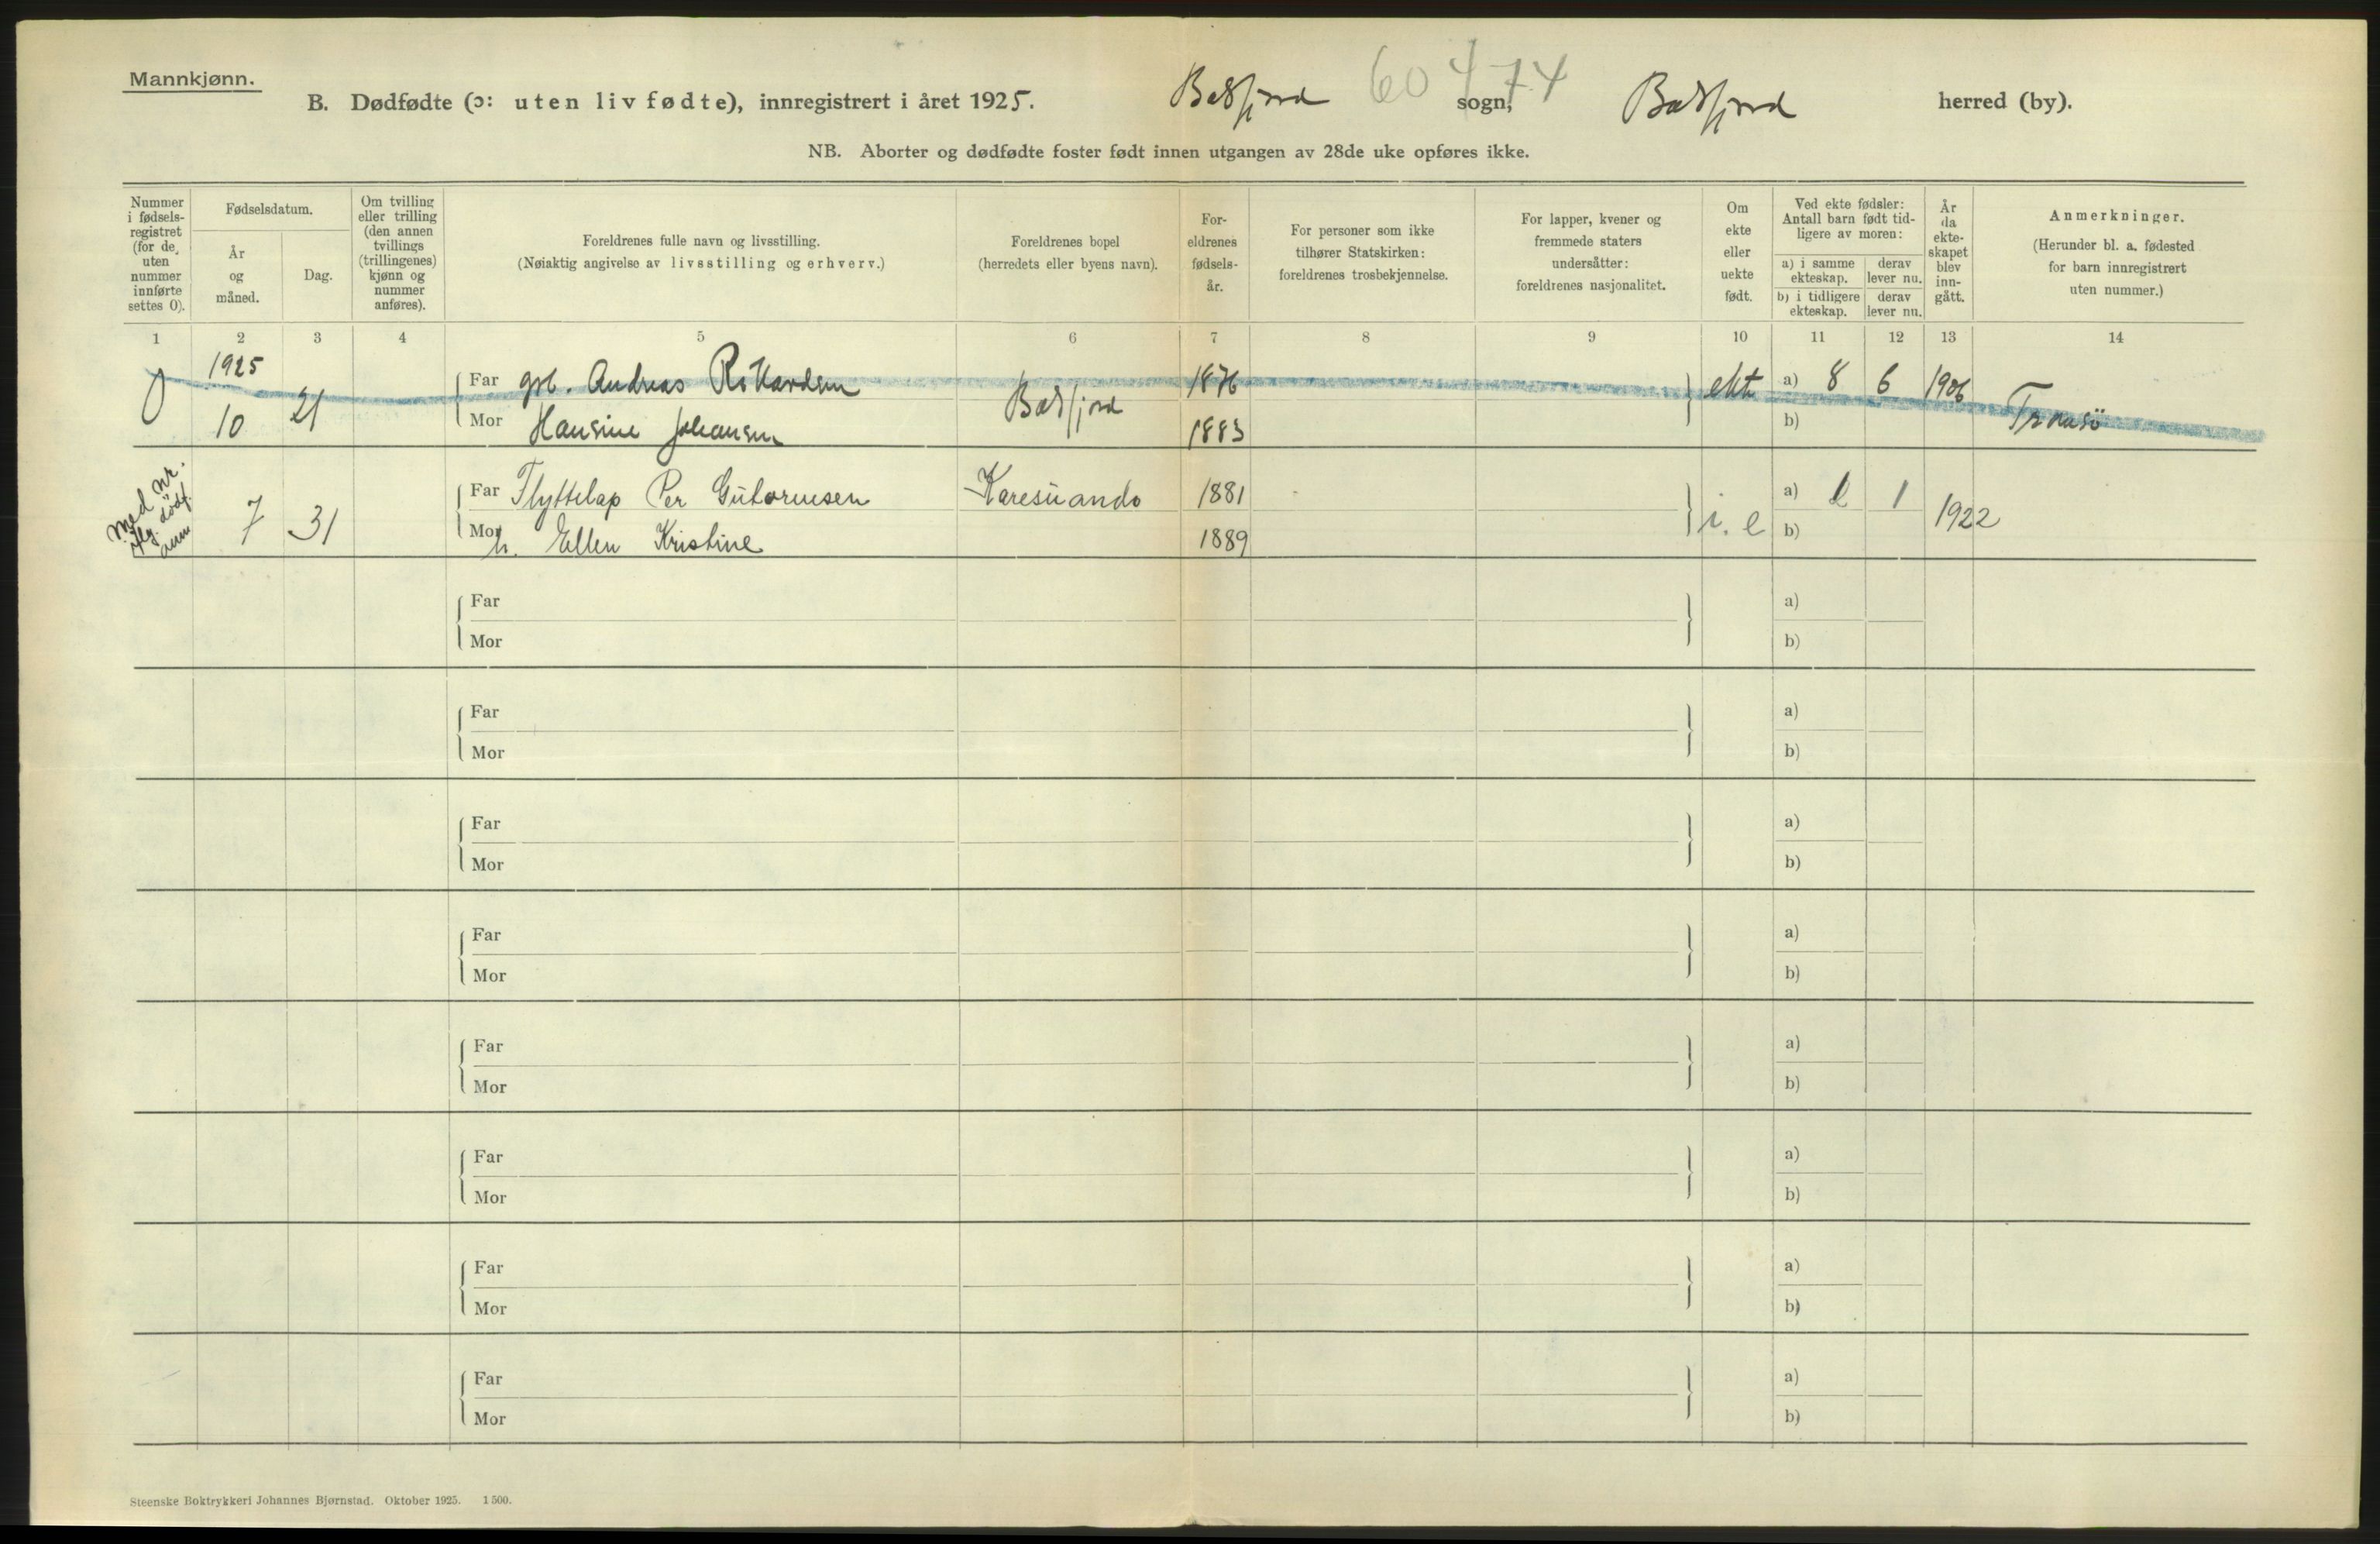 Mannkjønn.
B. Dødfødte (ɔ: uten liv fødte), innregistrert i året 1925. Balsfjord sogn, Balsfjord herred (by).
60 474
NB. Aborter og dødfødte foster født innen utgangen av 28de uke opføres ikke.
Nummer i fødsels-registret (for de uten nummer innførte settes 0).
Fødselsdatum.
År og måned.
Dag.
Om tvilling eller trilling (den annen tvillings (trillingenes) kjønn og nummer anføres).
Foreldrenes fulle navn og livsstilling.
(Nøiaktig angivelse av livsstilling og erhverv.)
Foreldrenes bopel
(herredets eller byens navn).
For-eldrenes fødsels-år.
For personer som ikke tilhører Statskirken: foreldrenes trosbekjennelse.
For lapper, kvener og fremmede staters undersåtter: foreldrenes nasjonalitet.
Om ekte eller uekte født.
Ved ekte fødsler: Antall barn født tid-ligere av moren:
a) i samme ekteskap. derav lever nu.
b) i tidligere ekteskap. derav lever nu.
År da ekte-skapet blev inn-gått.
Anmerkninger.
(Herunder bl. a. fødested for barn innregistrert uten nummer.)
1 2 3 4 5 6 7 8 9 10 11 12 13 14
1925
0 10 21 Far grb. Andreas Rikardsen Balsfjord 1876 ekt a) 8 6 1906 Tromsö
Mor Hansine Johansen 1883 b)
Med nr.
dødf.
7 31 Far Flyttelap Per Gutormsen Karesuando 1881 i. e a) 1 1922
Mor h. Ellen Kristine 1889 b)
Far a)
Mor b)
Far a)
Mor b)
Far a)
Mor b)
Far a)
Mor b)
Far a)
Mor b)
Far a)
Mor b)
Far a)
Mor b)
Far a)
Mor b)
Steenske Boktrykkeri Johannes Bjørnstad. Oktober 1925. 1 500.